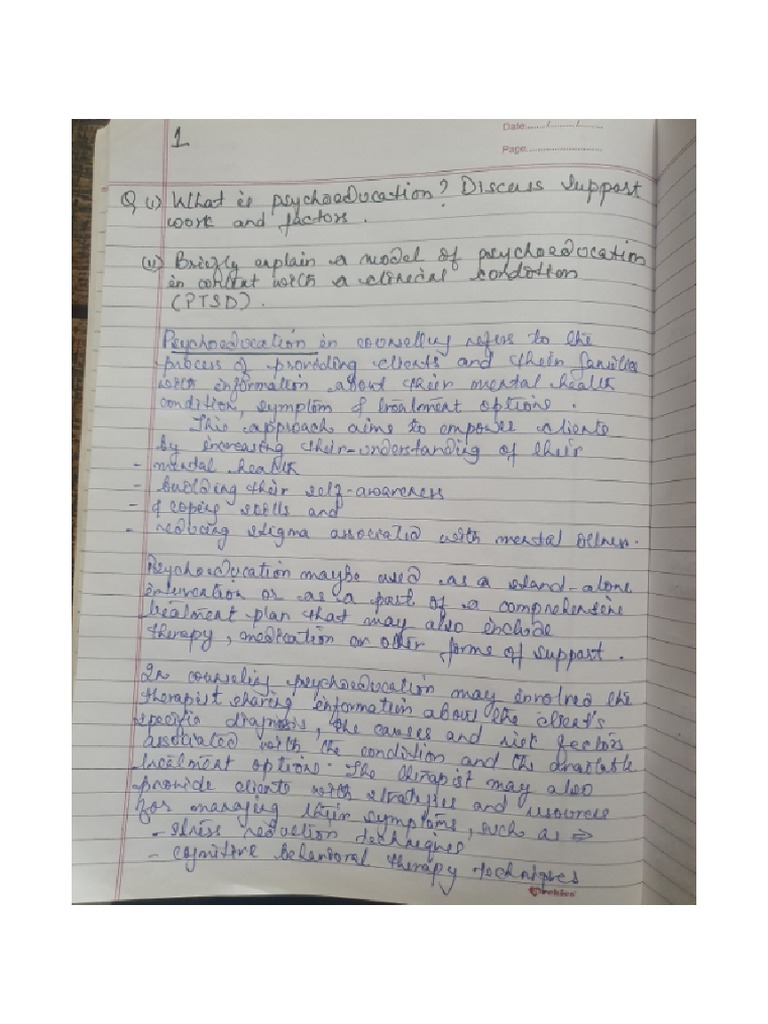 1
Date:....../....../............
Page.............................
Q (i) What is psychoeducation? Discuss support
work and factors.
(ii) Briefly explain a model of psychoeducation
in context with a clinical condition
(PTSD).
Psychoeducation in counselling refers to the
process of providing clients and their families
with information about their mental health
condition, symptom & treatment options.
This approach aims to empower clients
by increasing their understanding of their
- mental health
- building their self-awareness
- & coping skills and
- reducing stigma associated with mental illness.
Psychoeducation maybe used as a stand-alone
intervention or as a part of a comprehensive
treatment plan that may also include
therapy, medication or other forms of support.
In counseling psychoeducation may involved the
therapist sharing information about the client's
specific diagnosis, the causes and risk factors
associated with the condition and the available
treatment options. The therapist may also
provide clients with strategies and resources
for managing their symptoms, such as ⇒
- stress reduction techniques
- cognitive behavioral therapy techniques